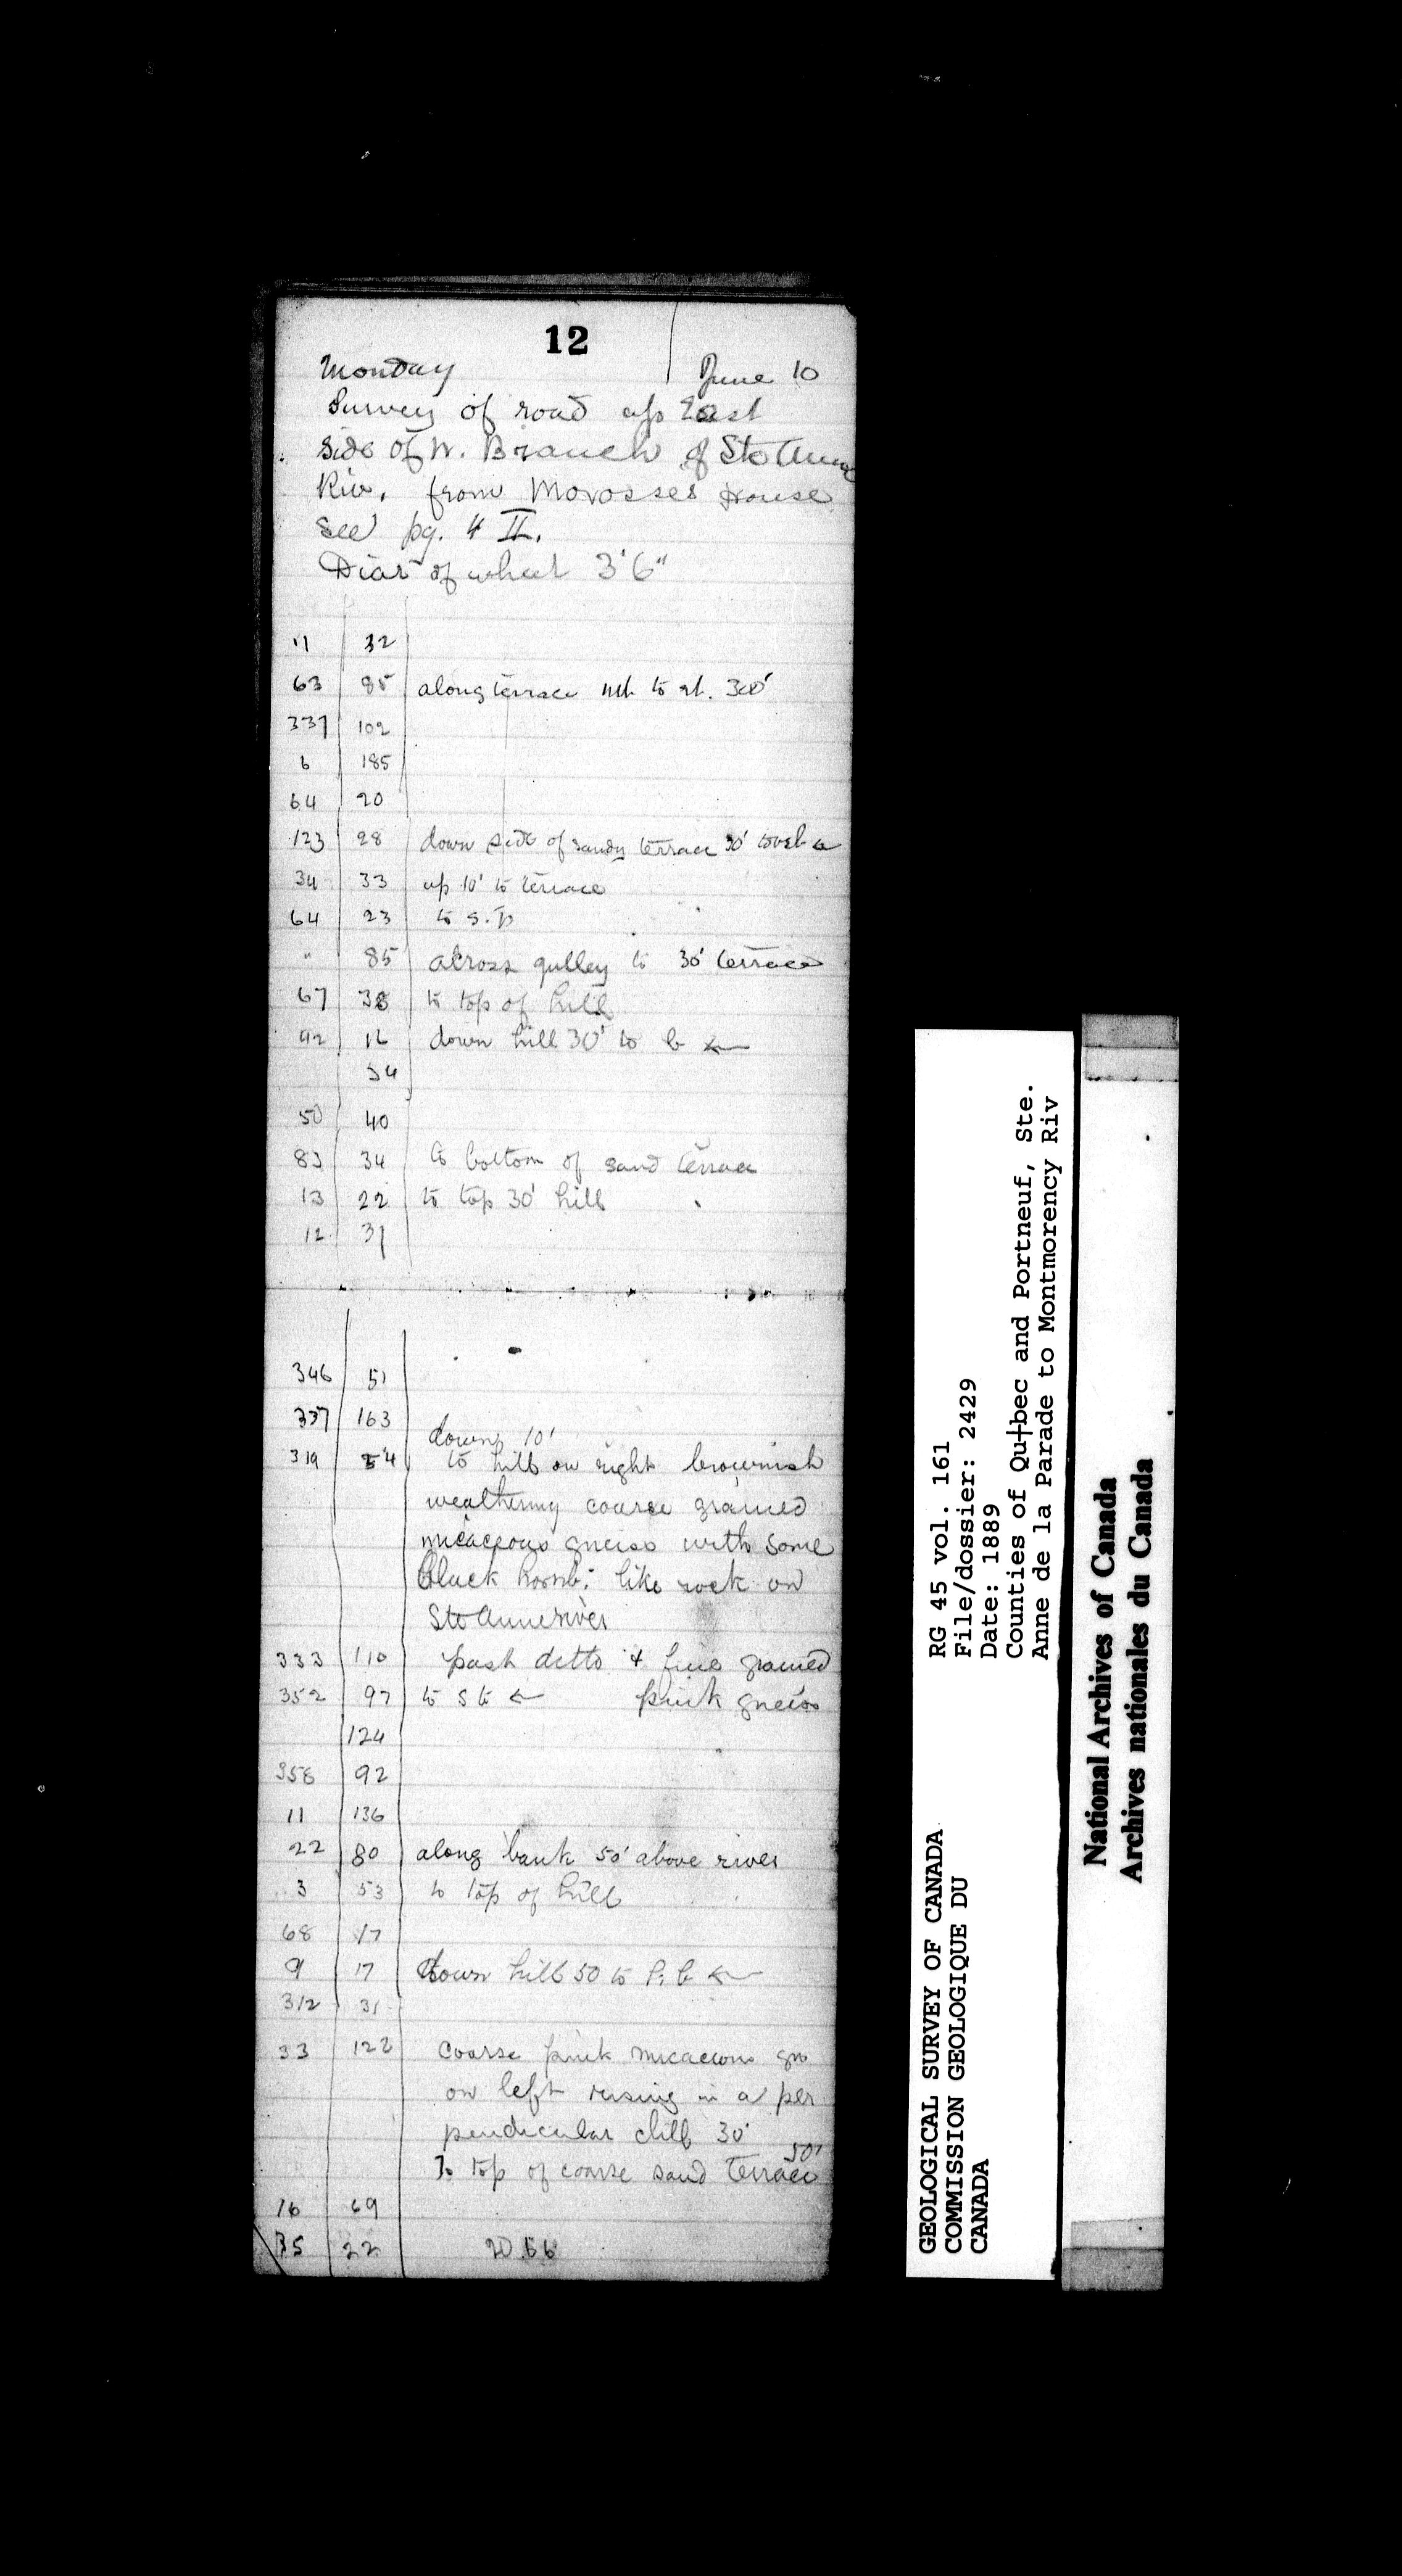 12
Monday June 10
Survey of road up East
side of W. Branch of Ste Anne
Riv. from Morosses House
see pg. 4 II.
Diar of wheel 3'6"
11 32
63 85 along terrace mt. to rt. 300'
337 102
6 185
64 20
123 28 down side of sandy terrace 30' to
34 33 up 10' to terrace
64 23 to s.p
" 85 across gulley to 30' terrace
67 38 to top of hill
42 16 down hill 30' to b ←
54
50 40
83 34 to bottom of sand terrace
13 22 to top 30' hill
12 31
346 51
337 163
down 10'
319 54 to hill on right brownish
weathering coarse grained
micaceous gneiss with some
black hornb. like rock on
Ste Anne river
333 110 past ditto + fine grained
352 97 to s to ← pink gneiss
124
358 92
11 136
22 80 along bank 50' above river
3 53 to top of hill
68 17
9 17 down hill 50 to l. b ←
312 31
33 122 coarse pink micaceous gn
on left rising in a per
pendicular cliff 30'
50'
To top of coarse sand terrace
16 69
35 22 20.66
GEOLOGICAL SURVEY OF CANADA
COMMISSION GEOLOGIQUE DU
CANADA
RG 45 vol. 161
File/dossier: 2429
Date: 1889
Counties of Qu┼bec and Portneuf, Ste.
Anne de la Parade to Montmorency Riv
National Archives of Canada
Archives nationales du Canada